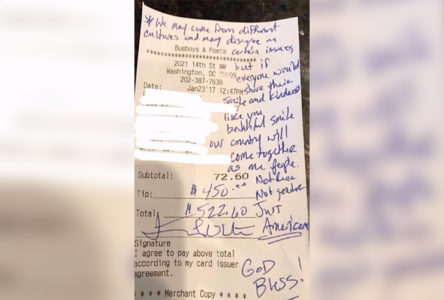 * We may come from different
cultures and may disagree on
certain issues,
Busboys & Poets
2021 14th St NW
Washington, DC
202-387-7638
Date:
Jan23'17 12:47PM
but if
everyone would
share their
smile and kindness
like you
beautiful smile
our country will
come together
as one people.
Not race
Not gender
Just
American
Subtotal: 72.60
Tip: $450.00
Total $522.60
Signature
I agree to pay above total
according to my card issuer
agreement.
God
Bless!
* * * * Merchant Copy * * * *